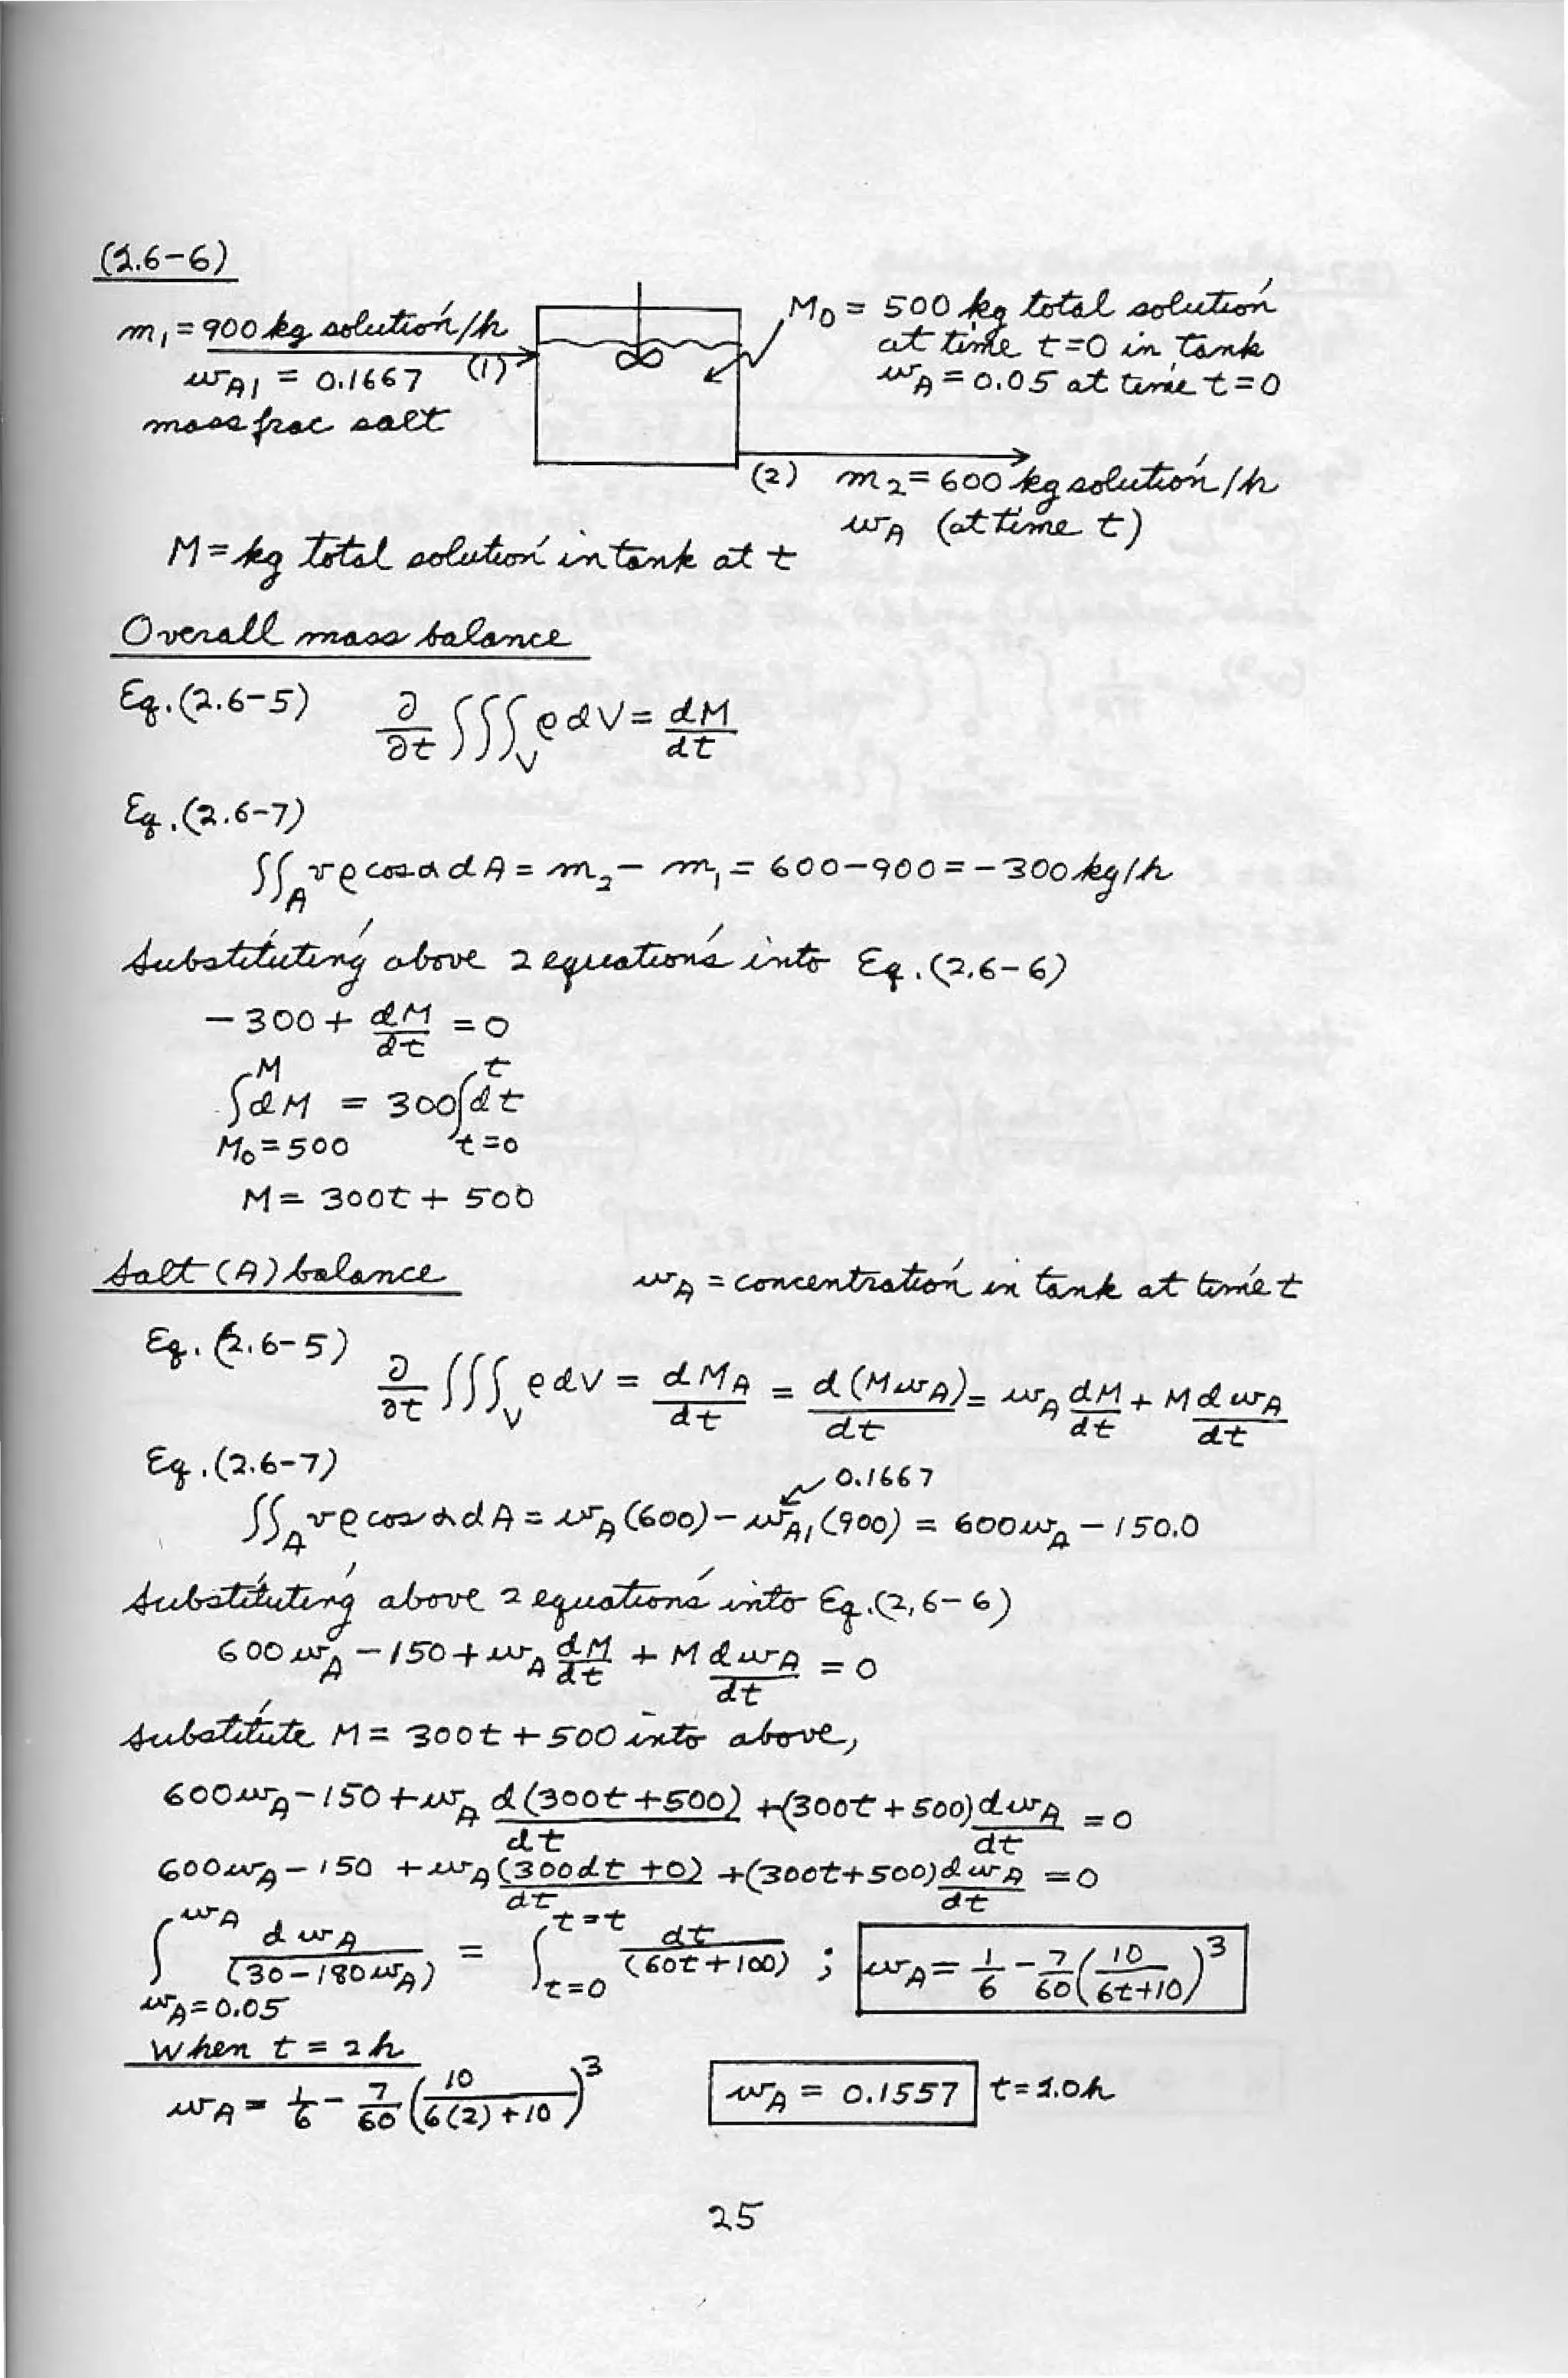 (2.6-6)
m₁ = 900 kg solution/h
(1)
w_A1 = 0.1667
mass frac salt
M₀ = 500 kg total solution
at time t=0 in tank
w_A = 0.05 at time t=0
(2) m₂ = 600 kg solution/h
w_A (at time t)
M = kg total solution in tank at t
Overall mass balance
Eq. (2.6-5) ∂/∂t ∭_V ρdV = dM/dt
Eq. (2.6-7)
∬_A vρ cos α dA = m₂ - m₁ = 600-900 = -300 kg/h
Substituting above 2 equations into Eq. (2.6-6)
-300 + dM/dt = 0
∫_{M₀=500}^{M} dM = 300 ∫_{t=0}^{t} dt
M = 300t + 500
Salt (A) balance w_A = concentration in tank at time t
Eq. (2.6-5) ∂/∂t ∭_V ρdV = dM_A/dt = d(Mw_A)/dt = w_A dM/dt + M dw_A/dt
Eq. (2.6-7)
0.1667
∬_A vρ cos α dA = w_A(600) - w_A1(900) = 600w_A - 150.0
Substituting above 2 equations into Eq. (2.6-6)
600w_A - 150 + w_A dM/dt + M dw_A/dt = 0
Substitute M = 300t + 500 into above,
600w_A - 150 + w_A d(300t+500)/dt + (300t+500) dw_A/dt = 0
600w_A - 150 + w_A (300dt + 0)/dt + (300t+500) dw_A/dt = 0
∫_{w_A=0.05}^{w_A} dw_A/(30-180w_A) = ∫_{t=0}^{t=t} dt/(60t+100) ; w_A = 1/6 - 7/60 (10/(6t+10))³
When t = 2h
w_A = 1/6 - 7/60 (10/(6(2)+10))³ w_A = 0.1557 t=2.0h
25